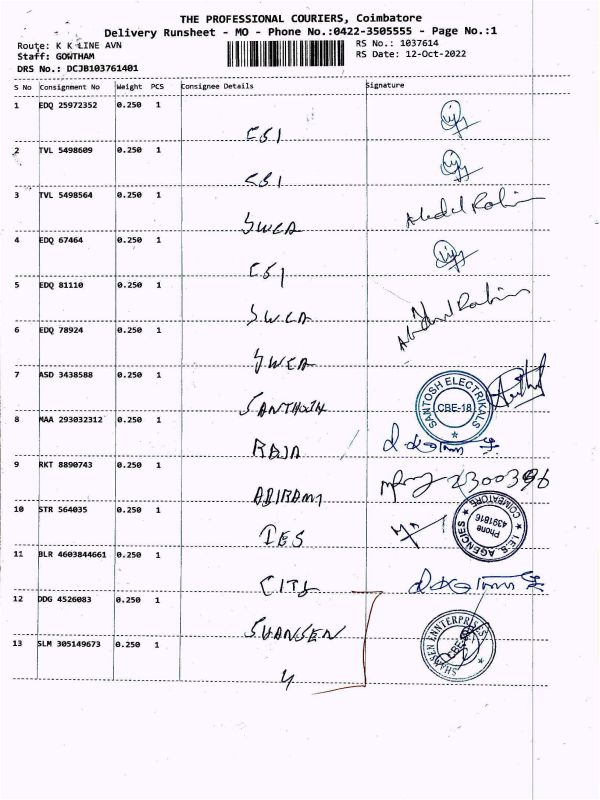 THE PROFESSIONAL COURIERS, Coimbatore
Delivery Runsheet - MO - Phone No.:0422-3505555 - Page No.:1
Route: K K LINE AVN
RS No.: 1037614
Staff: GOWTHAM
RS Date: 12-Oct-2022
DRS No.: DCJB103761401
S No Consignment No Weight PCS Consignee Details Signature
1 EDQ 25972352 0.250 1
2 TVL 5498609 0.250 1
3 TVL 5498564 0.250 1 Abdul Rahim
SWCA
4 EDQ 67464 0.250 1
5 EDQ 81110 0.250 1 Abdul Rahim
SWCA
6 EDQ 78924 0.250 1
SWCA
7 ASD 3438588 0.250 1
SANTHOSH
SANTOSH ELECTRIKALS
CBE-18
8 MAA 293032312 0.250 1
RAJA
9 RKT 8890743 0.250 1
ABIRAMI
10 STR 564035 0.250 1
IES
I.E.S. AGENCIES COIMBATORE
Phone
4391616
11 BLR 4603844661 0.250 1
CITY
12 DDG 4526083 0.250 1
SHANSEN
13 SLM 305149673 0.250 1
ENNTERPRISES